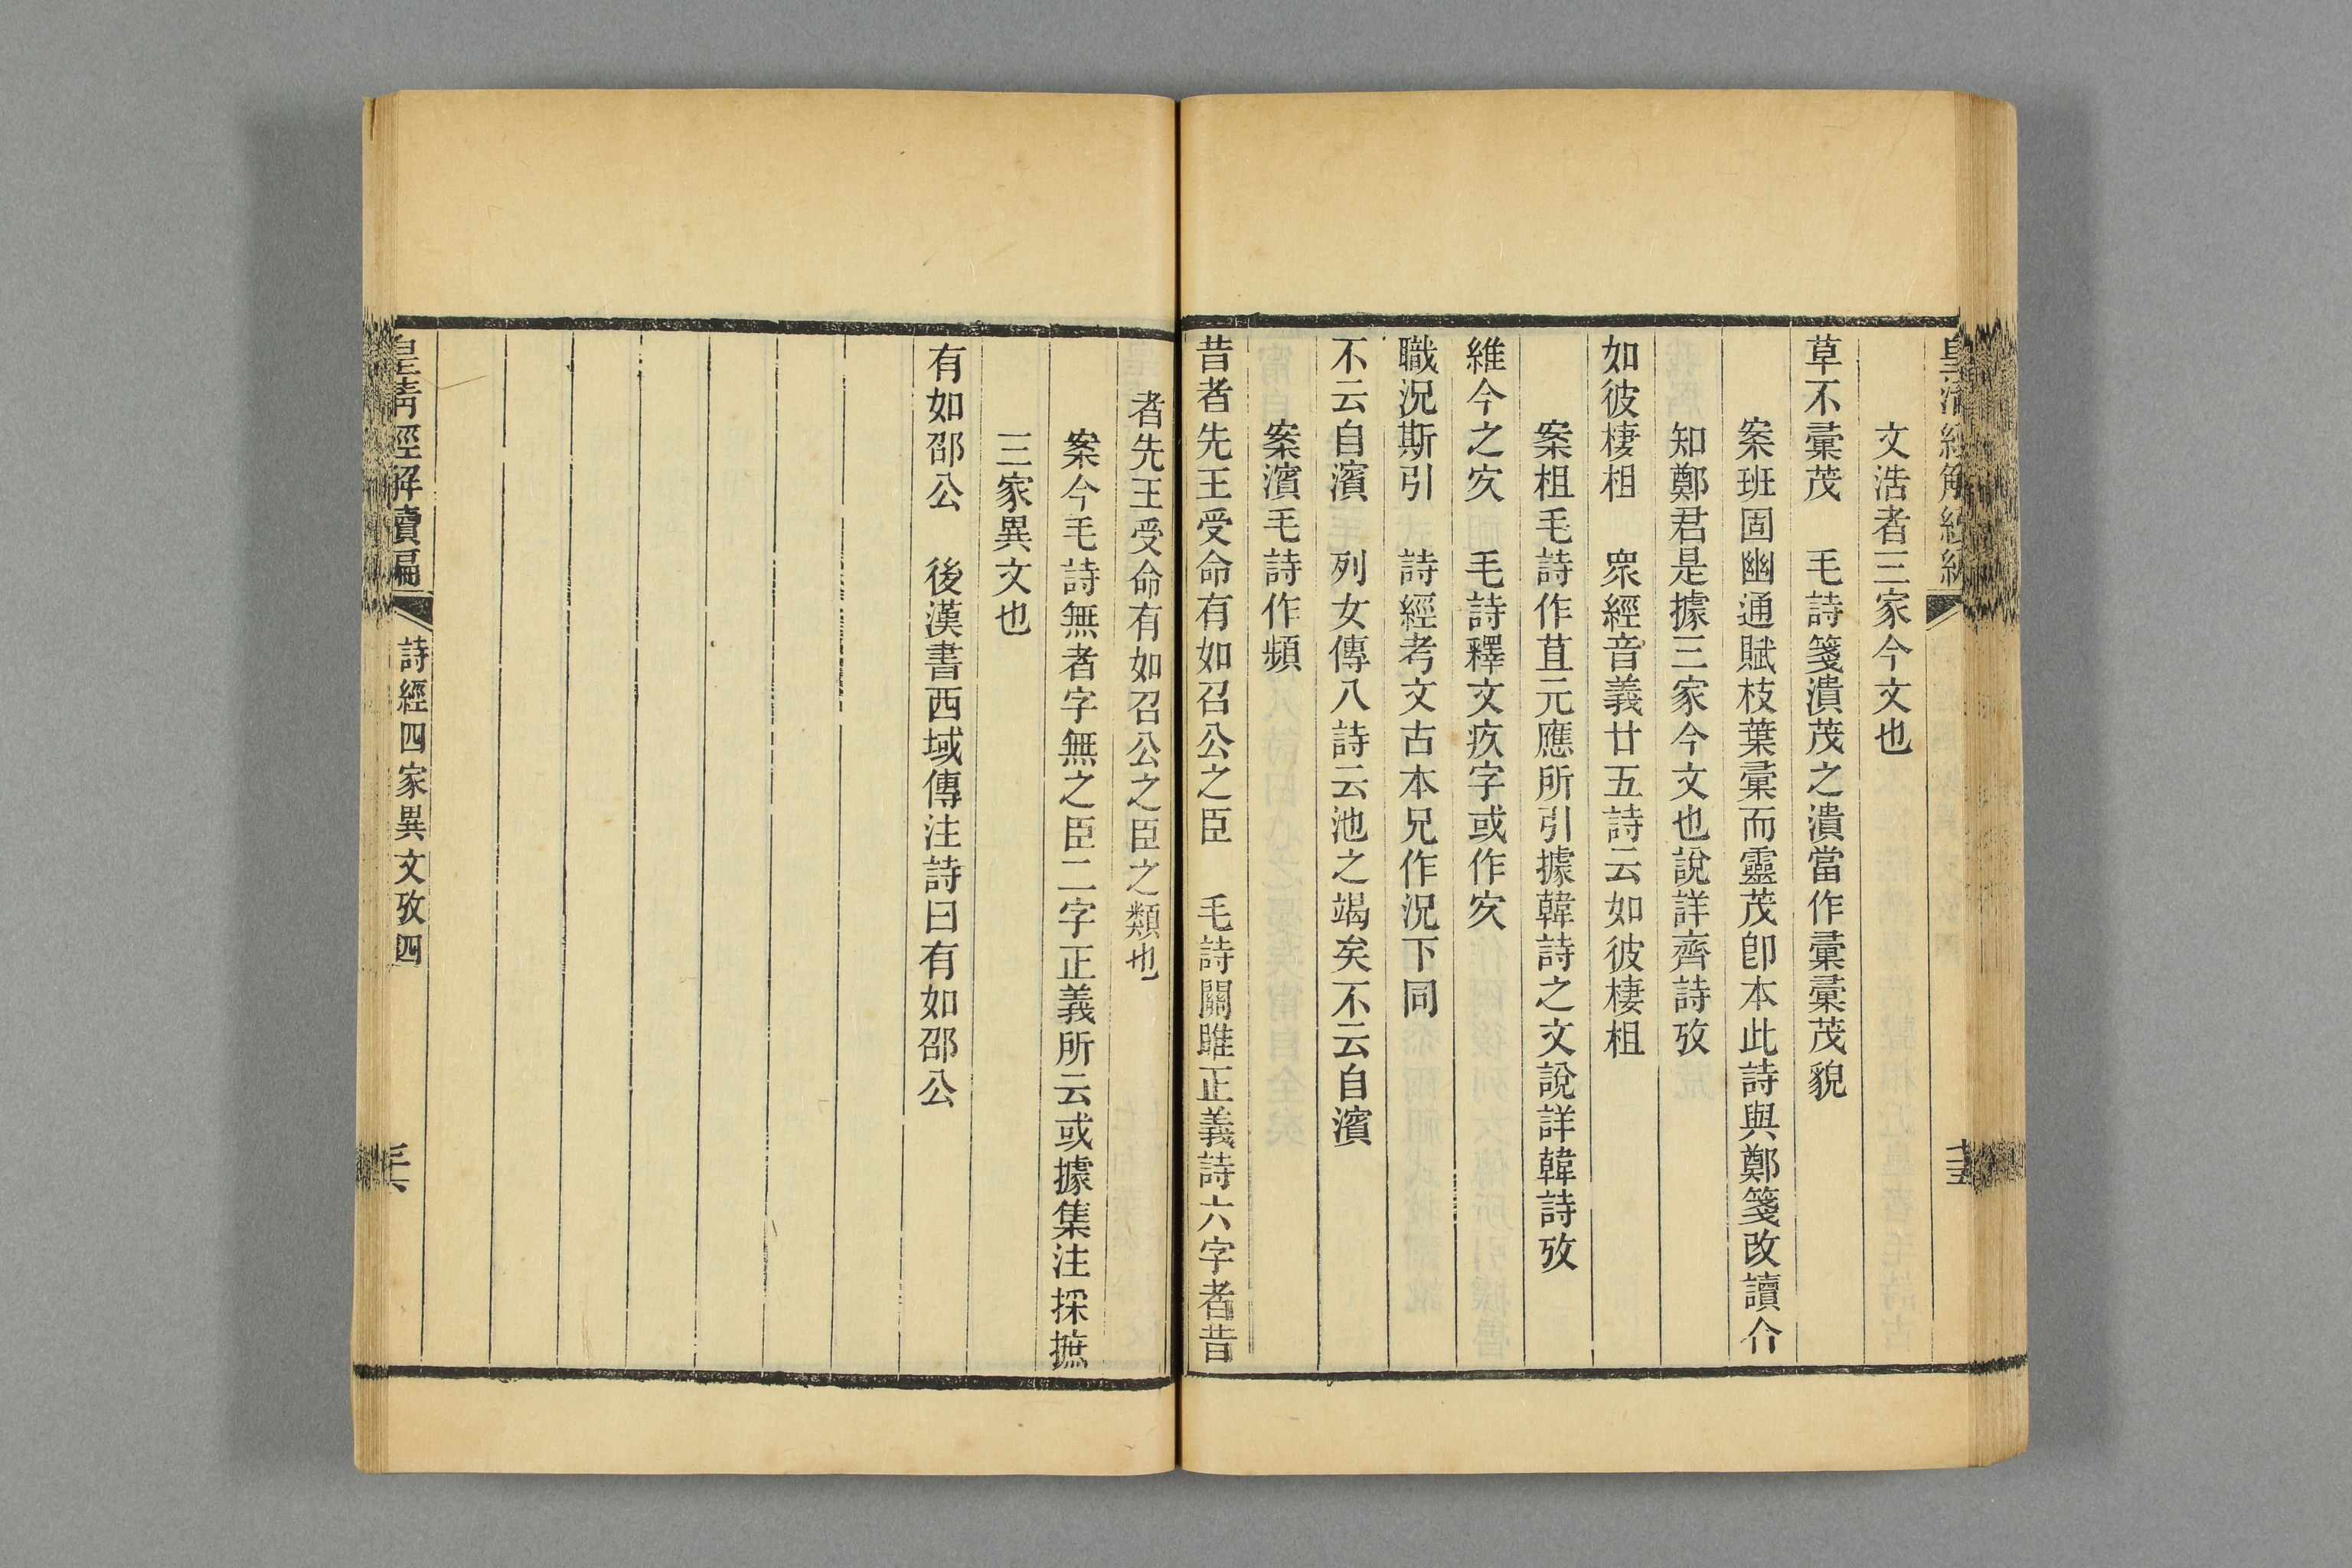 文浩者三家今文也
草不彙茂　毛詩箋潰茂之潰當作彙彙茂貌
案班固幽通賦枝葉彙而靈茂卽本此詩與鄭箋改讀介
知鄭君是據三家今文也說詳齊詩攷
如彼棲相　衆經音義廿五詩云如彼棲柤
案柤毛詩作苴元應所引據韓詩之文說詳韓詩攷
維今之㝌　毛詩釋文疚字或作㝌
職況斯引　詩經考文古本兄作況下同
不云自濱　列女傳八詩云池之竭矣不云自濱
案濱毛詩作頻
昔者先王受命有如召公之臣　毛詩關雎正義詩六字者昔
者先王受命有如召公之臣之類也
案今毛詩無者字無之臣二字正義所云或據集注採摭
三家異文也
有如邵公　後漢書西域傳注詩曰有如邵公
皇淸經解續編
詩經四家異文攷四